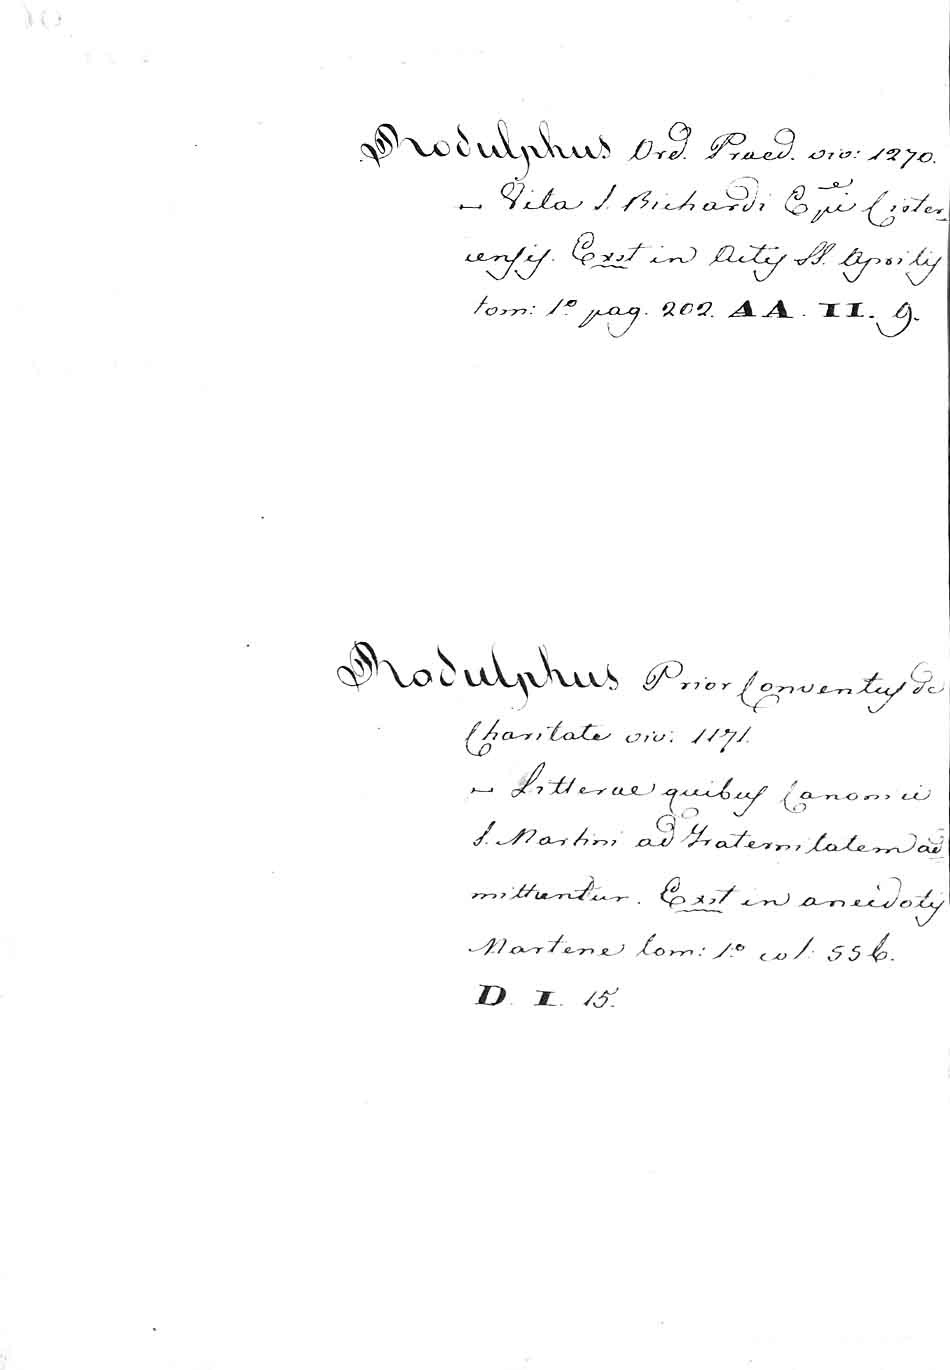 Rodulphus Ord. Praed. viv: 1270.
– Vita S. Richardi Epi Cister-
censis. Exst in Actis SS. Aprilis
tom: 1º pag. 202. AA. II. 9.
Rodulphus Prior Conventus de
Charitate viv: 1171.
– Litterae quibus Canonici
S. Martini ad Fraternitatem ad
mittuntur. Exst in anecdotis
Martene tom: 1º col: 556.
D. I. 15.